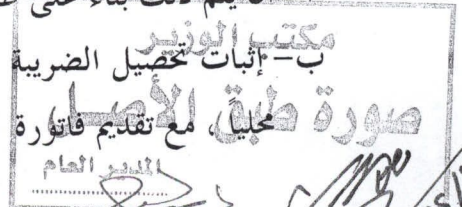 يتم ذلك بناء على
مكتب الوزير
ب- إثبات تحصيل الضريبة
صورة طبق الأصل
محلياً، مع تقديم فاتورة
المدير العام